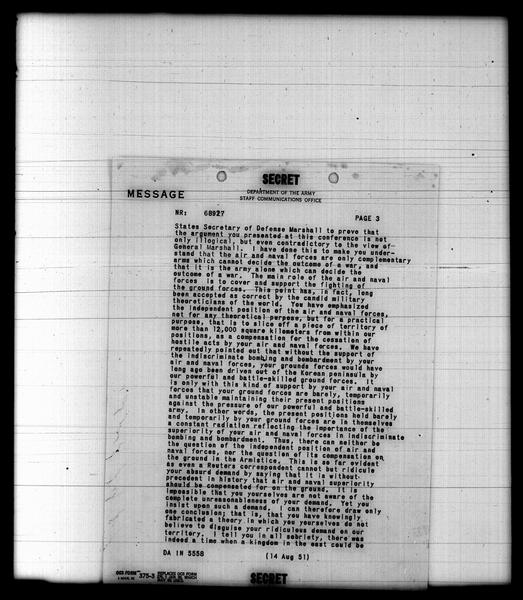 SECRET
MESSAGE
DEPARTMENT OF THE ARMY
STAFF COMMUNICATIONS OFFICE
NR: 68927
PAGE 3
States Secretary of Defense Marshall to prove that
the argument you presented at this conference is not
only illogical, but even contradictory to the view of
General Marshall. I have done this to make you under-
stand that the air and naval forces are only complementary
arms which cannot decide the outcome of a war, and
that it is the army alone which can decide the
outcome of a war. The main role of the air and naval
forces is to cover and support the fighting of
the ground forces. This point has, in fact, long
been accepted as correct by the candid military
theoreticians of the world. You have emphasized
the independent position of the air and naval forces,
not for any theoretical purpose, but for a practical
purpose, that is to slice off a piece of territory of
more than 12,000 square kilometers from within our
positions, as a compensation for the cessation of
hostile acts by your air and naval forces. We have
repeatedly pointed out that without the support of
the indiscriminate bombing and bombardment by your
air and naval forces, your grounds forces would have
long ago been driven out of the Korean peninsula by
our powerful and battle-skilled ground forces. It
is only with this kind of support by your air and naval
forces that your ground forces are barely, temporarily
and unstable maintaining their present positions
against the pressure of our powerful and battle-skilled
army. In other words, the present positions held barely
and temporarily by your ground forces are in themselves
a constant radiation reflecting the importance of the
superiority of your air and naval forces in indiscriminate
bombing and bombardment. Thus, there can neither be
the question of the independent position of air and
naval forces, nor the question of its compensation on
the ground in the Armistice. This is so far evident
as even a Reuters correspondent cannot but ridicule
your absurd demand by saying that it is without
precedent in history that air and naval superiority
should be compensated for on the ground. It is
impossible that you yourselves are not aware of the
complete unreasonableness of your demand. Yet you
insist upon such a demand. I can therefore draw only
one conclusion; that is, that you have knowingly
fabricated a theory in which you yourselves do not
believe to disguise your ridiculous demand on our
territory. I tell you in all sobriety, there was
indeed a time when a kingdom in the east could be
DA IN 5558
(14 Aug 51)
OCS FORM 375-3
REPLACES OCS FORM
SECRET